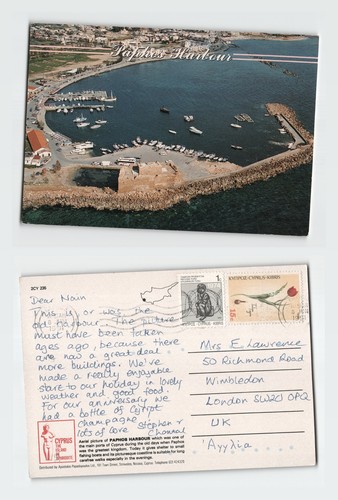 Paphos Harbour
2CY 236
Dear Nain
This is or was the
old harbour. The picture
must have been taken
ages ago, because there
are now a great deal
more buildings. We've
made a really enjoyable
start to our holiday in lovely
weather and good food.
For our anniversary we
had a bottle of Cypriot
champagne
Stephen &
lots of love
Channal
ΚΥΠΡΟΣ-CYPRUS-KIBRIS
Mrs E. Lawrence
50 Richmond Road
Wimbledon
London SW20 0PQ
UK
'Αγγλία
CYPRUS
THE
ISLAND
OF
APHRODITE
Aerial picture of PAPHOS HARBOUR which was one of the
main ports of Cyprus during the old days when Paphos
was the greatest kingdom. Today it gives shelter to small
fishing boats and its picturesque coastline is suitable for long
carefree walks especially in the evenings.